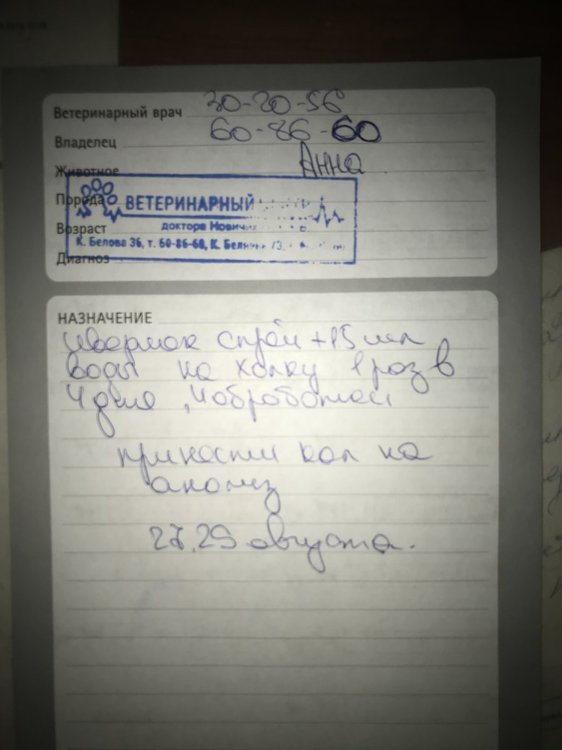 Ветеринарный врач 30-20-56
Владелец 60-86-60
Животное Анна
Порода
ВЕТЕРИНАРНЫЙ
Возраст
доктора Нович
К. Белова 36, т. 60-86-60, К. Беляева 73,
Диагноз
НАЗНАЧЕНИЕ
ивермек спрей +15 мл
воды на холку 1 раз в
4 дня, 4 обработки
принести кал на
анализ
27, 29 августа.